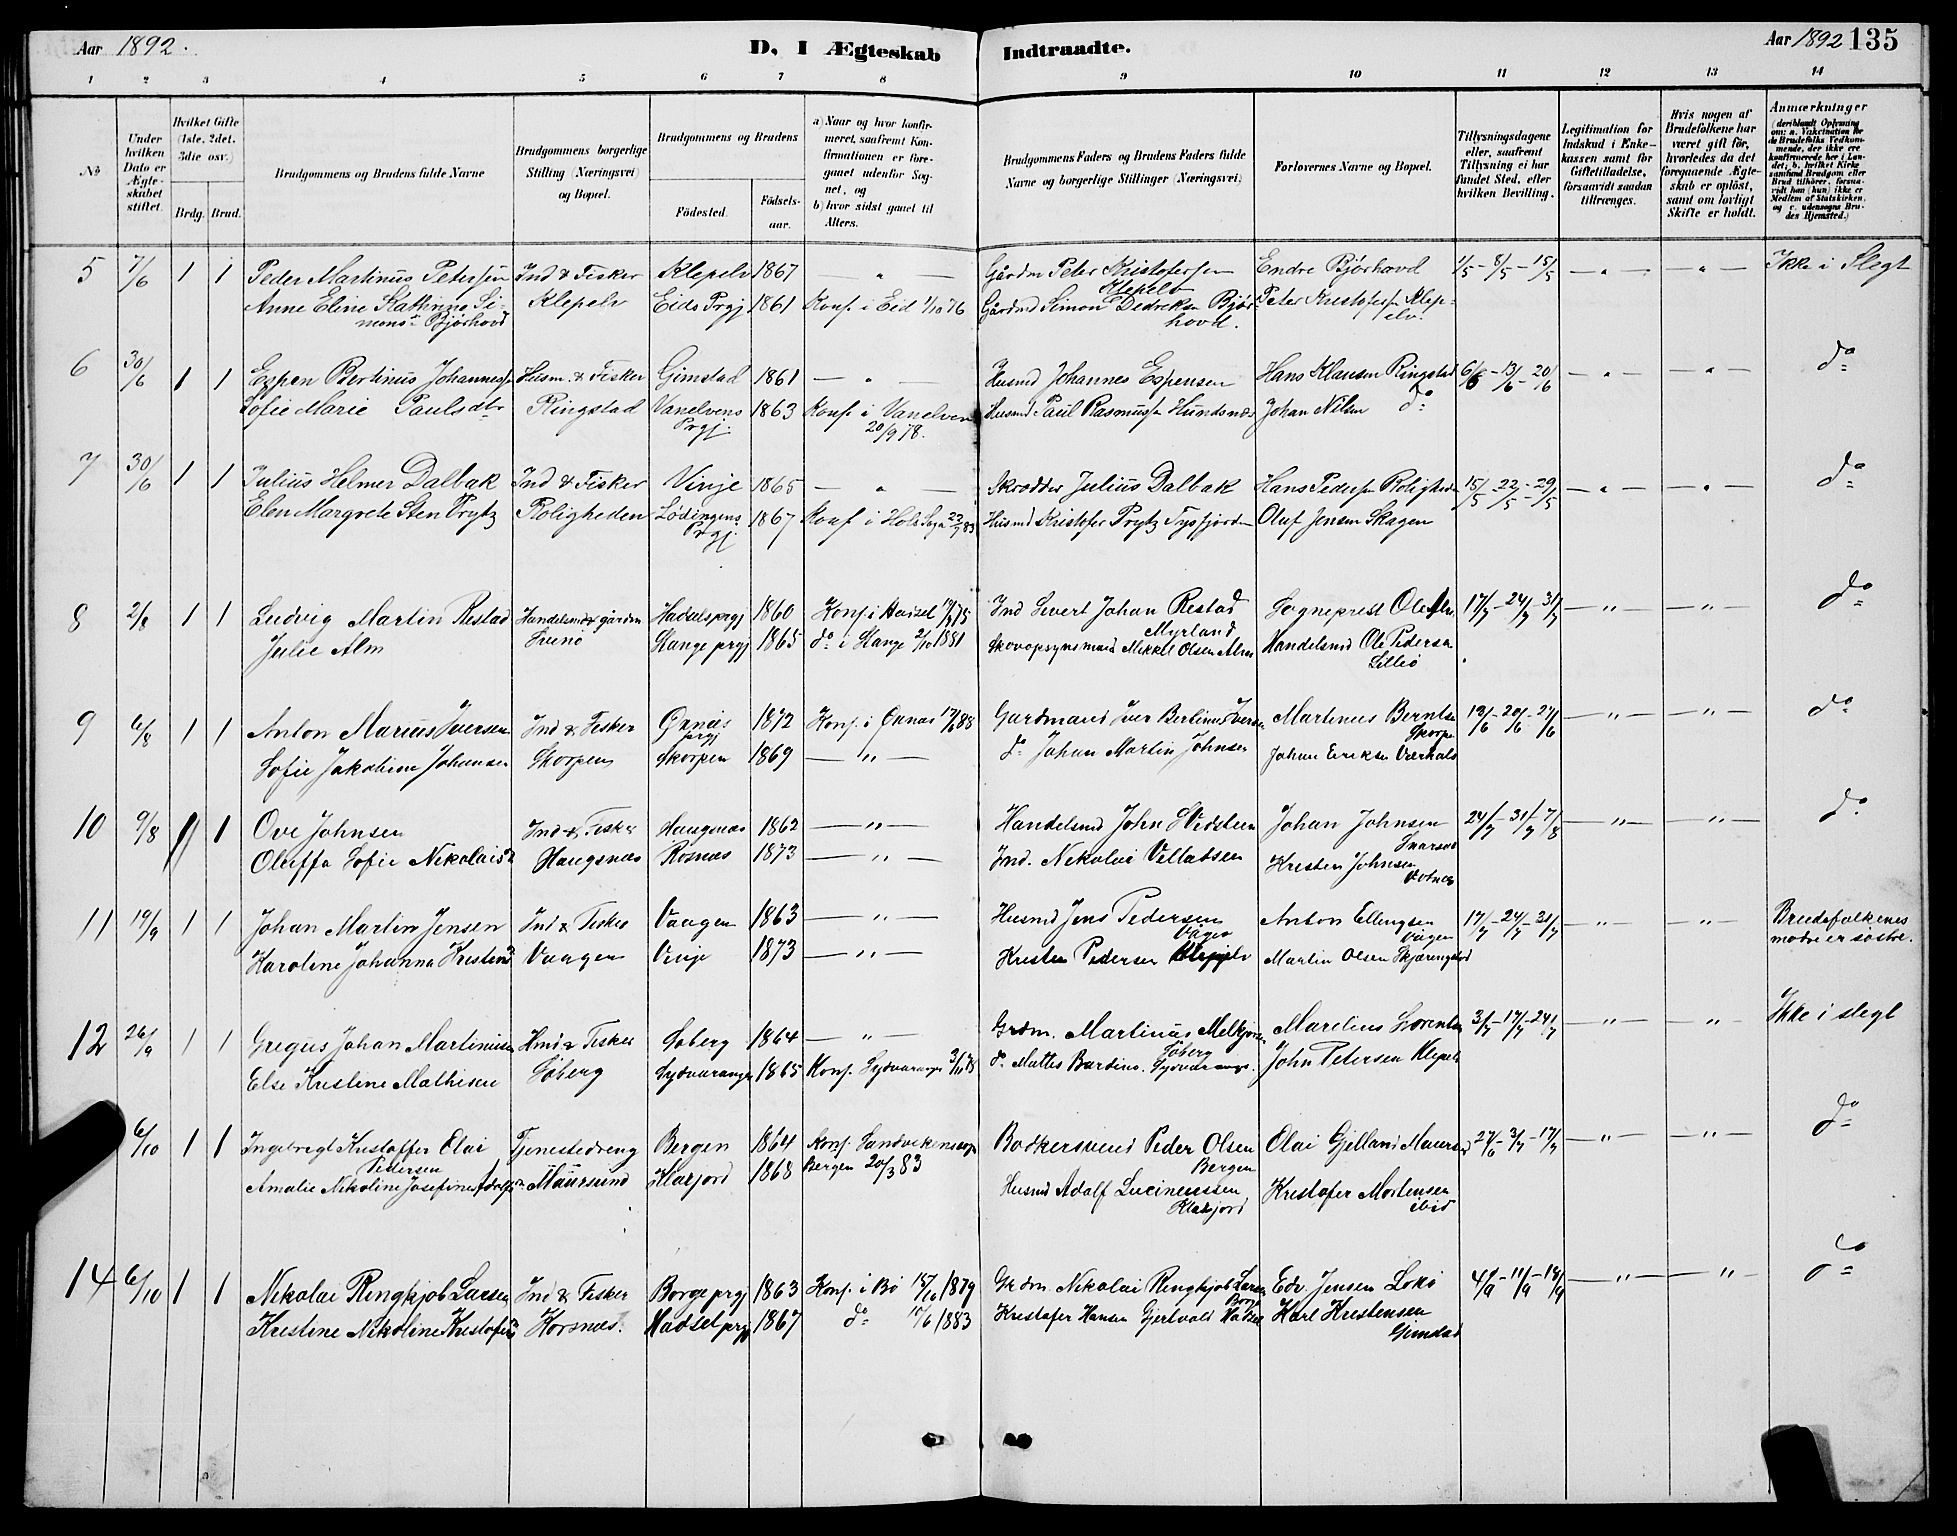 Aar 1892.
D, I Ægteskab Indtraadte.
Aar 1892 135
1 2 3 4 5 6 7 8 9 10 11 12 13 14
No
Under hvilken Dato er Ægteskabet stiftet.
Hvilket Gifte (1ste, 2det. 3die osv.)
Brdg. Brud.
Brudgommens og Brudens fulde Navne
Brudgommens borgerlige Stilling (Næringsvei) og Bopæl.
Brudgommens og Brudens
Fødested.
Fødselsaar.
a) Naar og hvor konfirmeret, saafremt Konfirmationen er foregaaet udenfor Sognet, og
b) hvor sidst gaaet til Alters.
Brudgommens Faders og Brudens Faders fulde Navne og borgerlige Stillinger (Næringsvei)
Forlovernes Navne og Bopæl.
Tillysningsdagene eller, saafremt Tillysning ei har fundet Sted, efter hvilken Bevilling.
Legitimation for Indskud i Enkekassen samt for Giftetilladelse, forsaavidt saadan tiltrænges.
Hvis nogen af Brudefolkene har været gift før, hvorledes da det foregaaende Ægteskab er opløst, samt om lovligt Skifte er holdt.
Anmærkninger (deriblandt Oplysning om: a. Vakcination for de Brudefolks Vedkommende, der ikke ere konfirmerede her i Landet; b. hvilket Kirkesamfund Brudgom eller Brud tilhører, forsaavidt han (hun) ikke er Medlem af Statskirken, og c. udensogns Brudes Hjemsted.)
5 7/6 1 1 Peder Martinus Petersen Ind & Fisker Klepelv 1867 — " — Gårdm Peter Kristofersen Endre Bjørhovd 1/5 - 8/5 - 15/5 — " — — " — Ikke i Slegt
Klepelv
Anne Eline Kathrine Si- Klepelv Eids Prgj 1861 Konf. i Eid 1/10 76 Gårdmd Simon Dedreksen Bjør- Peter Kristofersen Klep-
mons= Bjørhovd hovd. elv.
6 30/6 1 1 Espen Bertinus Johannessn Husm. & Fisker Gimstad 1861 — " — Husmd Johannes Espensen Hans Klausen Ringstad 6/6 - 13/6 - 20/6 — " — — " — do
Sofie Marie Paulsdtr Ringstad Vanelvens 1863 Konf. i Vanelven Husmd. Paul Rasmussen Hundsnæs Johan Nilsen do
Prgj. 20/9 78.
7 30/6 1 1 Julius Helmer Dalbak Ind & Fisker Vinje 1865 — " — Skrædder Julius Dalbak Hans Pedersen Roligheden 15/5 - 22/5 - 29/5 — " — — " — do
Elen Margrete Sten Prytz Roligheden Lødingens 1867 Konf. i Hols Sogn Husmd Kristofer Prytz Tysfjorden Oluf Jensen Skagen
Prgj.
8 2/8 1 1 Ludvig Martin Restad Handelsmd & gårdm Hadselsprgj 1860 Konf. i Hadsel Ind Sivert Johan Restad Sogneprest Ole Alm 17/7 - 24/7 - 31/7 — " — — " — do
Myrland
Julie Alm Stange prgj 1865 do i Stange 2/10 1881 Skovopsynsmand Mikkel Olsen Alm Handelsmd Ole Pedersen
9 6/8 1 1 Anton Marius Iversen Ind & Fisker Øxnæs 1872 Konf. i Øxnæs Gardmand Iver Bertinus Iversen Martinus Berntsen 13/6 - 20/6 - 27/6 — " — — " — do
prgj Skorpen
Sofie Jakobine Johansen Skorpen Skorpen 1869 — " — do Johan Martin Johnsen Johan Eriksen
10 9/8 1 1 Ove Johnsen Ind & Fisker Haugsnæs 1862 — " — Handelsmd John Johan Johnsen 24/7 - 31/7 - 7/8 — " — — " — do
Oluffa Sofie Nikolaisd Haugsnæs 1873 — " — Ind. Nikolai Kristen Johnsen
11 19/9 1 1 Johan Martin Jensen Ind & Fisker Vaagen 1863 — " — Husmd Jens Pedersen Anton Ellingsen 17/7 - 24/7 - 31/7 — " — — " — Brudefolkenes
Vågen Vågen mødre er søstre.
Karoline Johanna Kristensd Vaagen Vinje 1873 — " — Kristen Pedersen Klepelv Martin Olsen Skjærengstad
12 26/9 1 1 Gregus Johan Martinusen Hmd & Fisker Søberg 1864 — " — Grdm. Martinus Melkjorsen Marelius Lorentsen 3/7 - 17/7 - 24/7 — " — — " — Ikke i slegt
Søberg
Else Kristine Mathisen Søberg Sydvaranger 1865 Konf. Sydvaranger do Mattes Bardinus. Sydvaranger John Petersen Klepelv
6/10 1 1 Ingebregt Kristoffer Elai Tjenestedreng Bergen 1864 Konf. Sandvikens sogn Bødkersvend Peder Olsen Elai Gjelland Maursund 27/6 - 3/7 - 17/7 — " — — " — do
Pedersen Bergen 20/3 83 Bergen
Amalie Nikoline Josefine Adolfsd Maursund Klaksjord 1868 Husmd Adolf Lucineussen Kristofer Mortensen
Klaksjord ibid
14 6/10 1 1 Nikolai Ringkjob Larsen Ind & Fisker Borge prgj 1863 Konf. i Bø 1879 Grdm. Nikolai Ringkjob Larsen Edv. Jensen Lokø 4/9 - 11/9 - 18/9 — " — — " — do
Borge
Kristine Nikoline Kristofersd Korsnæs. Hadsel prgj 1867 do 1883 Kristofer Hansen Gjertvold Hadsel Karl Kristensen
Gimstad